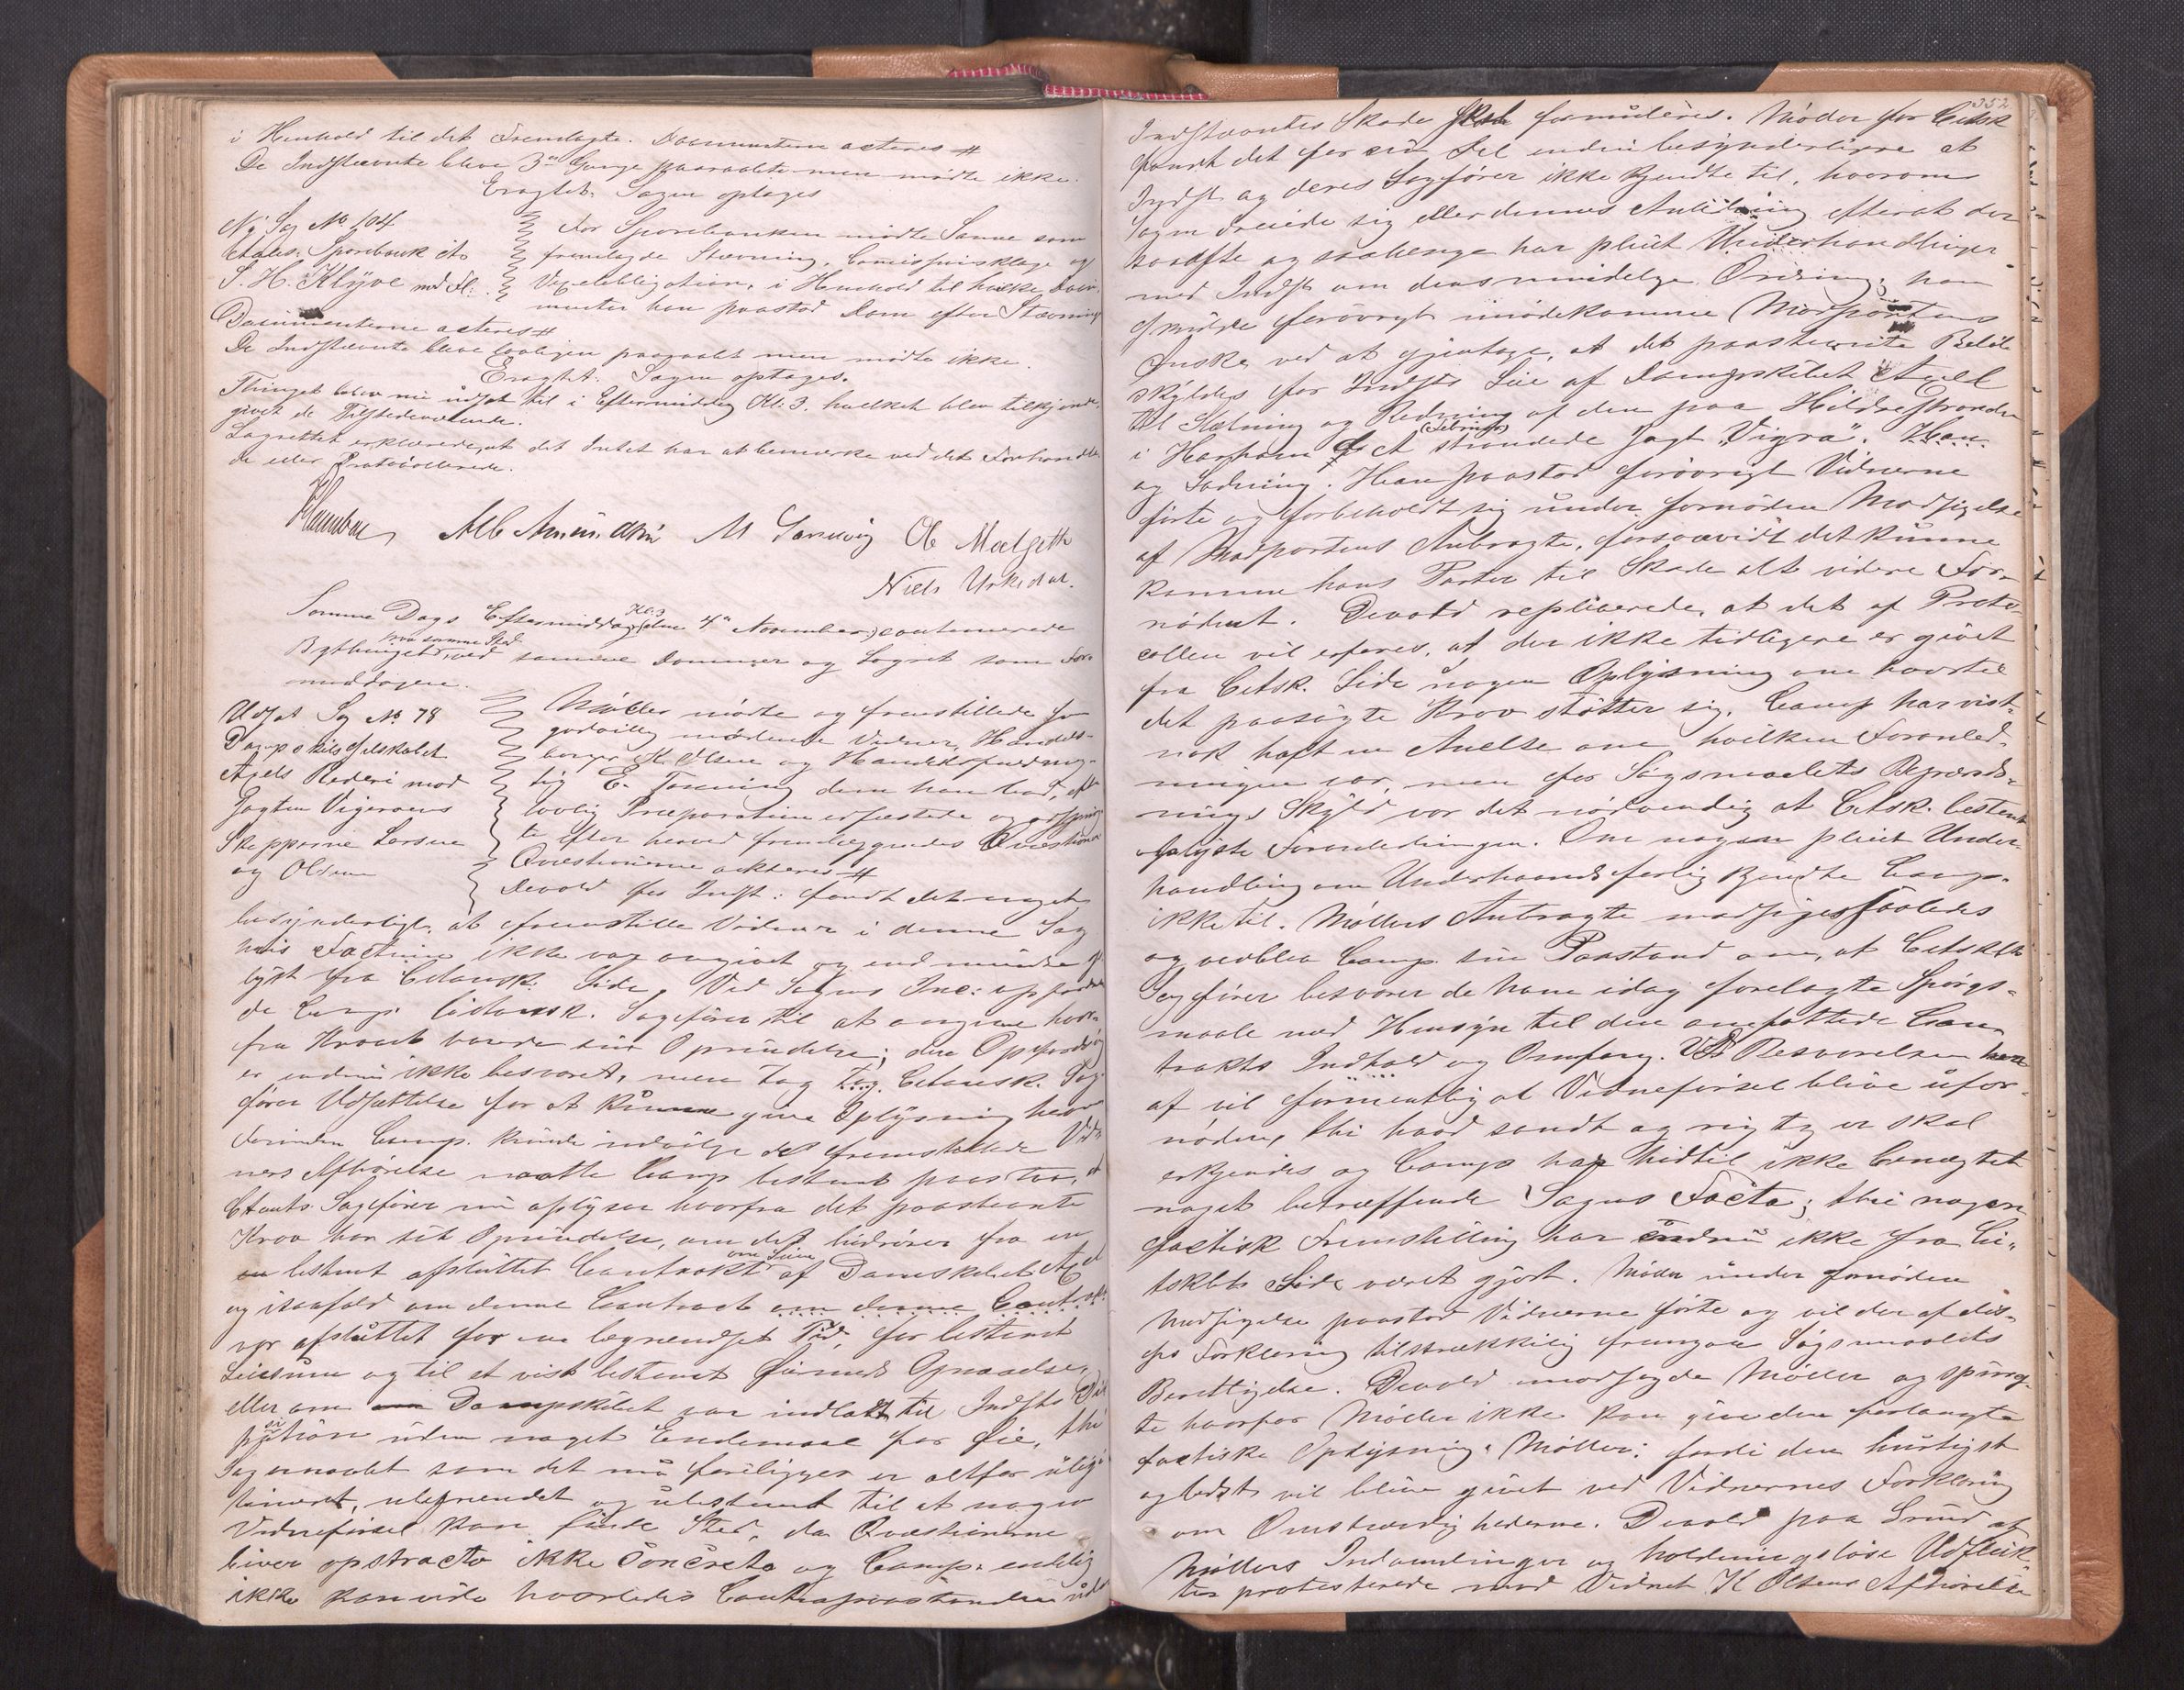 i Henhold til det Fremlagte. Documenterne acteres #
De Indstevnte bleve 3de Gange paaraabte men mødte ikke.
Eragtet: Sagen optages
Ny Sag No 104
Aales. Sparebank ctr
S. H. Klyve med Fl:
For Sparebanken mødte Sanne som
fremlagde Stevning, Comissionsklage og
Vexelobligation, i Henhold til hvilke Docu-
menter han paastod Dom efter Stævning
Documenterne acteres #
De Indstevnte bleve lovligen paaraabt men mødte ikke.
Eragtet: Sagen optages.
Thinget blev nu udsat til i Eftermiddag Kl: 3. hvilket blev tilkjende-
givet de Tilstedeværende.
Lagrettet erklærede, at det Intet har at bemærke ved det Forhandle-
de eller Protocollerede.
Ole Molgitte
Niels Urkedal.
Samme Dags Eftermiddag Kl: 3 den 4de November continuerede
Bythinget paa samme Sted ved samme Dommer og Lagret som For-
middagen.
Udsat Sag No 78
Dampskibsselskabet
Axels Rederi mod
Jagten Vigeraens
Skipperne Larsen
og Olsen
Møller mødte og fremstillede som
godvillig mødende Vidner, Handels-
borger K. Olsen og Handelsfuldmæg-
tig E. Tønning dem han bad, efter
lovlig Præparation edfæstede og adspurg-
te efter herved fremlæggendes Qvæstioner
Qvæstionerne akteres #
Devold for Indst: fandt det noget
besynderligt at fremstille Vidner i denne Sag
hvis Factum ikke var angivet og end mindre op-
lyst fra Citantsk. Side. Ved Sagens Inc: opfordre-
de Comp. Citantsk. Sagfører til at angive hvor-
fra Kravet havde sin Oprindelse; den Opfordring
er endnu ikke besvaret, men tog Citantsk. Sag-
fører Udsættelse for at kunne give Oplysning herom
Forinden Comp. kunde indvilge de fremstillede Vid-
ners Afhørelse maatte Comp bestemt paastaa, at
Citants Sagfører nu oplyser hvorfra det paastevnte
Krav har sit Oprindelse, om det hidrører fra en
bestemt afsluttet Contrakt om Leien af Dampskibet Axel
og isaafald om denne Contract om denne Contract
var afsluttet for en begrændset Tid, for bestemt
Leiesum og til et vist bestemt Øiemeds Opnaaelse,
eller om Dampskibet var indladt til Indsts Dis-
position uden noget Endemaal for Øie, thi
Sagsmaalet som det nu foreligger er altfor ulegi-
timeret, ubegrundet og ubestemt til at nogen
Vidneførsel kan finde Sted, da Qvæstionerne
bliver opstracto ikke concreto og Comp. endelig
ikke kan vide hvorledes Contrapaastanden
352
Indstævntes Skade skal formuleres. Møder for Citsk
fandt det for sin Del endnu besynderligere at
Indst. og deres Sagfører ikke kjendte til, hvorom
Sagen dreiede sig eller dennes Anledning efterat der
saa ofte og saalænge har pleiet Underhandlinger
med Indst om dens mindelige Ordning; han
skulde forøvrigt imødekomme Modpartens
Ønske ved at gjentage, at det paastevnte Beløb
skyldes for Indsts Leie af Dampskibet Axel
til Hætning og Redning af den paa Hildrestranden
i Harham strandede Jagt "Vigra".
og Ladning. Han paastod forøvrigt Vidnerne
førte og forbeholdt sig under fornøden Modsigelse
af Modpartens Anbragte, forsaavidt det kunne
komme hans Parter til Skade alt videre For-
nødent. Devold replicerede, at det af Proto-
collen vil erfares, at der ikke tidligere er givet
fra Citsk. Side nogen Oplysning om hvortil
det paasøgte Krav støtter sig. Comp har vist-
nok haft en Anelse om hvilken Foranled-
ningen var, men for Søgsmaalets Begrænds-
nings Skyld var det nødvendig at Citsk. bestemt
oplyste Foranledningen. Om nogen pleiet Under-
handling om Underhaandsforlig kjendte Comp.
ikke til. Møllers Anbragte modsiges saaledes
og vedblev Comp. sin Paastand om, at Citskbts
Sagfører besvarer de ham idag forelagte Spørgs-
maale med Hensyn til den omfattede Con-
trakts Indhold og Omfang. Ved Besvarelsen her-
af vil formentlig al Vidneførsel blive ufor-
nøden, thi hvad sandt og rigtig er skal
erkjendes og Comp har hidtil ikke benægtet
noget betræffende Sagens Facta; thi nogen
factisk Fremstilling har endnu ikke fra Ci-
tskbts Side været gjort. Møller under fornøden
Modsigelse paastod Vidnerne førte og vil der af dis-
ses Forklaring tilstrækkelig fremgaa Søgsmaalets
Berettigelse. Devold modsagde Møller og spurg-
te hvorfor Møller ikke kan give den forlangte
factiske Oplysning. Møller: fordi den hurtigst
og bedst vil blive givet ved Vidnernes Forklaring
om Omstændighederne. Devold paa Grund af
Møllers Indvendinger og holdningsløse Udflug-
ter protesterede mod Vidnet K Olsens Afhørelse